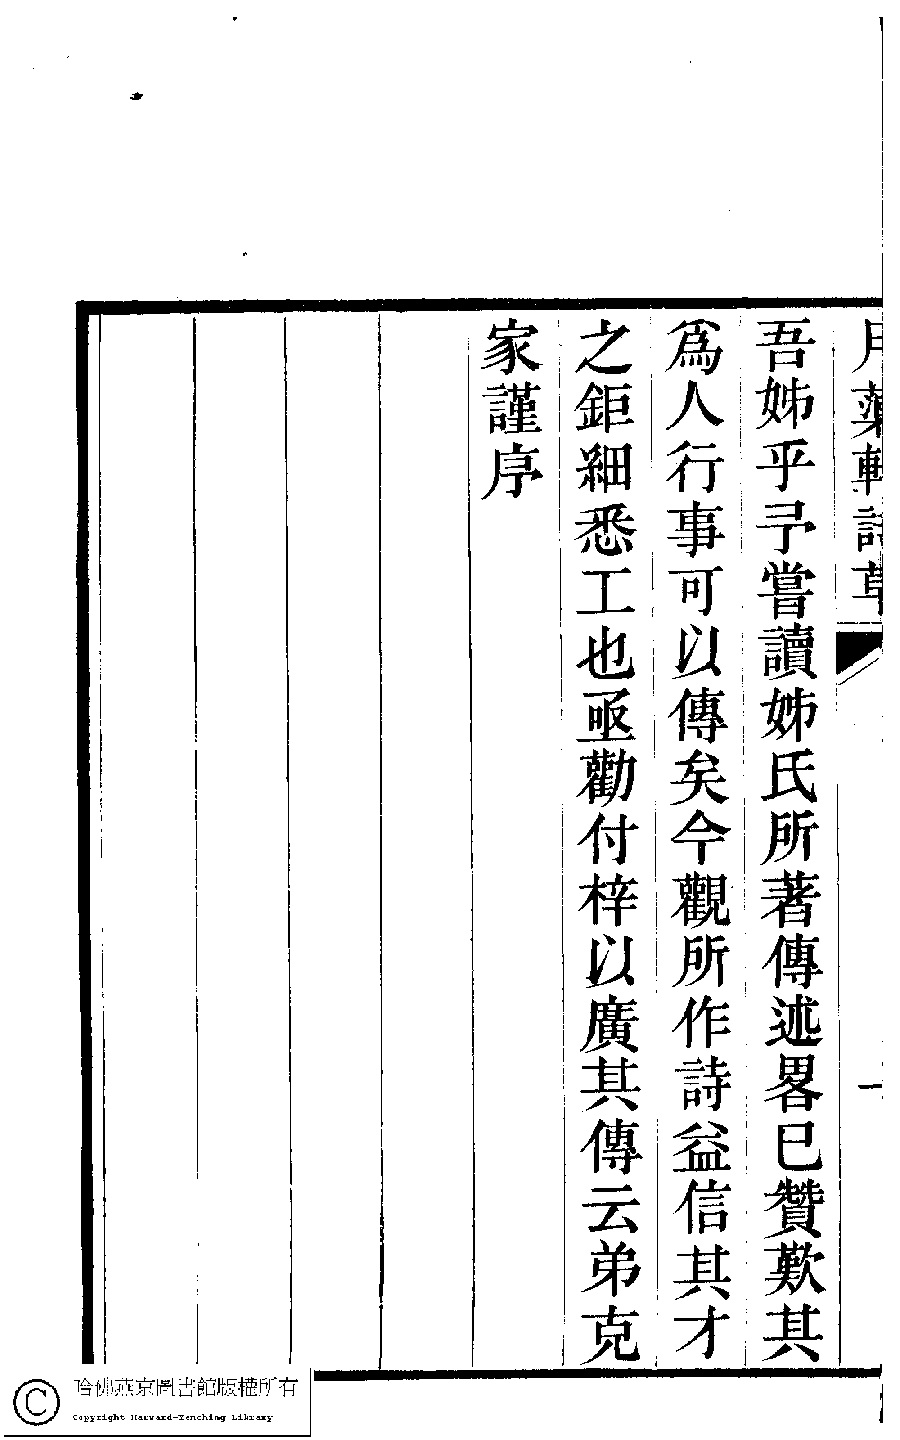 月蕖軒詩草
一
吾姊乎予嘗讀姊氏所著傳述畧巳贊歎其
爲人行事可以傳矣今觀所作詩益信其才
之鉅細悉工也亟勸付梓以廣其傳云弟克
家謹序
哈佛燕京圖書館版權所有
Copyright Harvard-Yenching Library